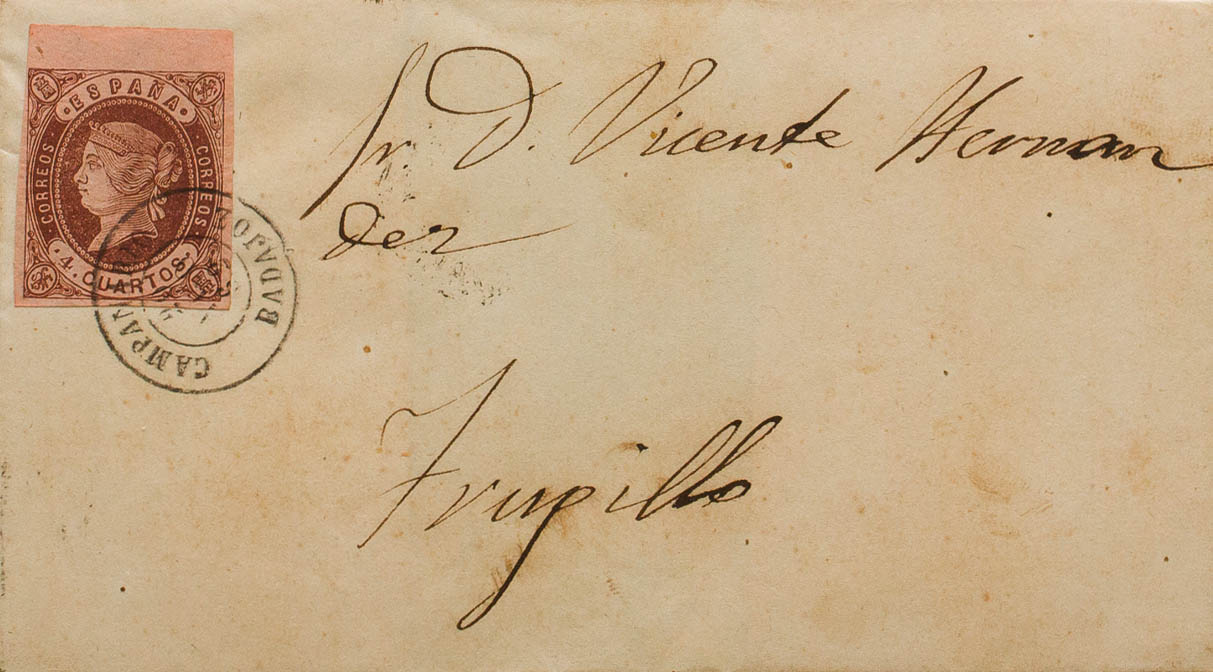 ESPAÑA
CORREOS
CORREOS
4. CUARTOS
BADAJOZ
Sr. D. Vicente Hernan
dez
Trugillo